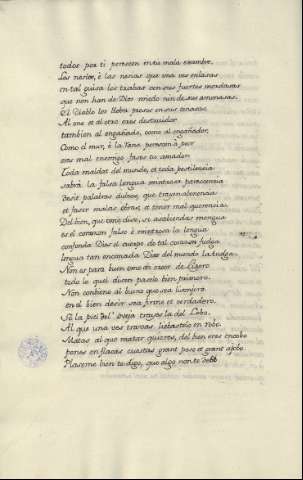 todos por ti perescen en tu mala exambre.
Los necios, è las necias que una ves enlasas
en tal guisa los trabas con tus fuertes mordasas
que non han de Dios miedo nin de sus amenasas.
El Diablo los lleva presos en sus tenasas
Al uno et al otro eres destruidor
tambien al engañado, como al engañador,
Como el mur, è la rana perescen à peor
eres mal enemigo fases te amador.
Toda maldat del mundo, et toda pestilencia
sobre la falsa lengua mintrosa parescencia
desir palabras dulces, que trayan abenencia
et faser malas obras, et tener mal querencia.
Del bien, que ome dise, si a sabiendas mengua
es el corazon falso è mintrosa la lengua
confonda Dios el cuerpo do tal corazon fuelga
lengua tan enconada Dios del mundo la tuelga.
Non es para buen ome en creer de ligero
todo lo quel' dixeren pienselo bien primero.
Non combiene al bueno que sea lisonjero
en el bien desir sea firme et verdadero.
So la piel del' oveja trayas la del Lobo.
Al que una ves travas liebastelo en robo.
Matas al que matar quieres, del bien eres encobo
pones en flacas cuestas grant peso et grant ajobo.
Plaseme bien te digo, que algo non te debo